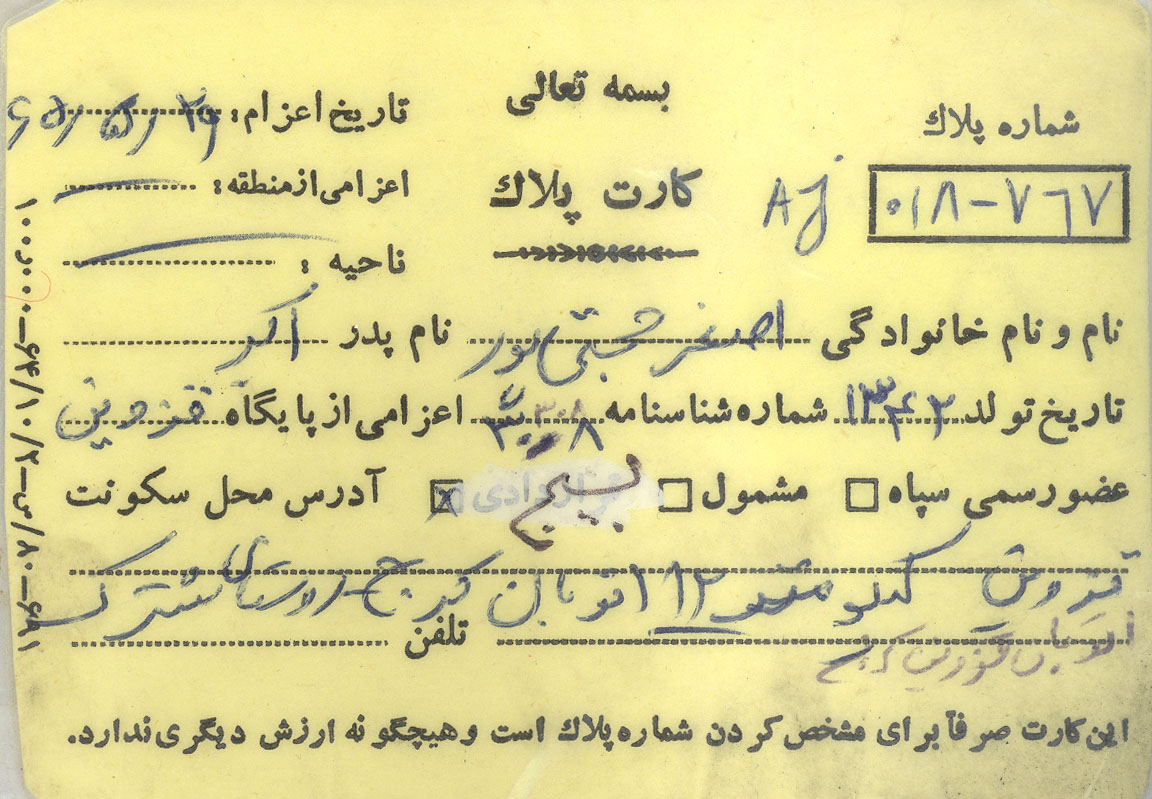 بسمه تعالی
شماره پلاك
۰۱۸-۷۶۷
AJ
کارت پلاك
تاریخ اعزام: ۶۵/۵/۲۹
اعزامی از منطقه:
ناحیه :
نام و نام خانوادگی اصغر مجتبی پور نام پدر اکبر
تاریخ تولد ۱۳۴۲ شماره شناسنامه ۳۰۸ اعزامی از پایگاه قزوین
عضو رسمی سپاه مشمول بسیج آدرس محل سکونت
قزوین کیلومتر ۱۲ اتوبان کرج روستای شترک
اتوبان قزوین کرج
تلفن
این کارت صرفاً برای مشخص کردن شماره پلاك است و هیچگونه ارزش دیگری ندارد.